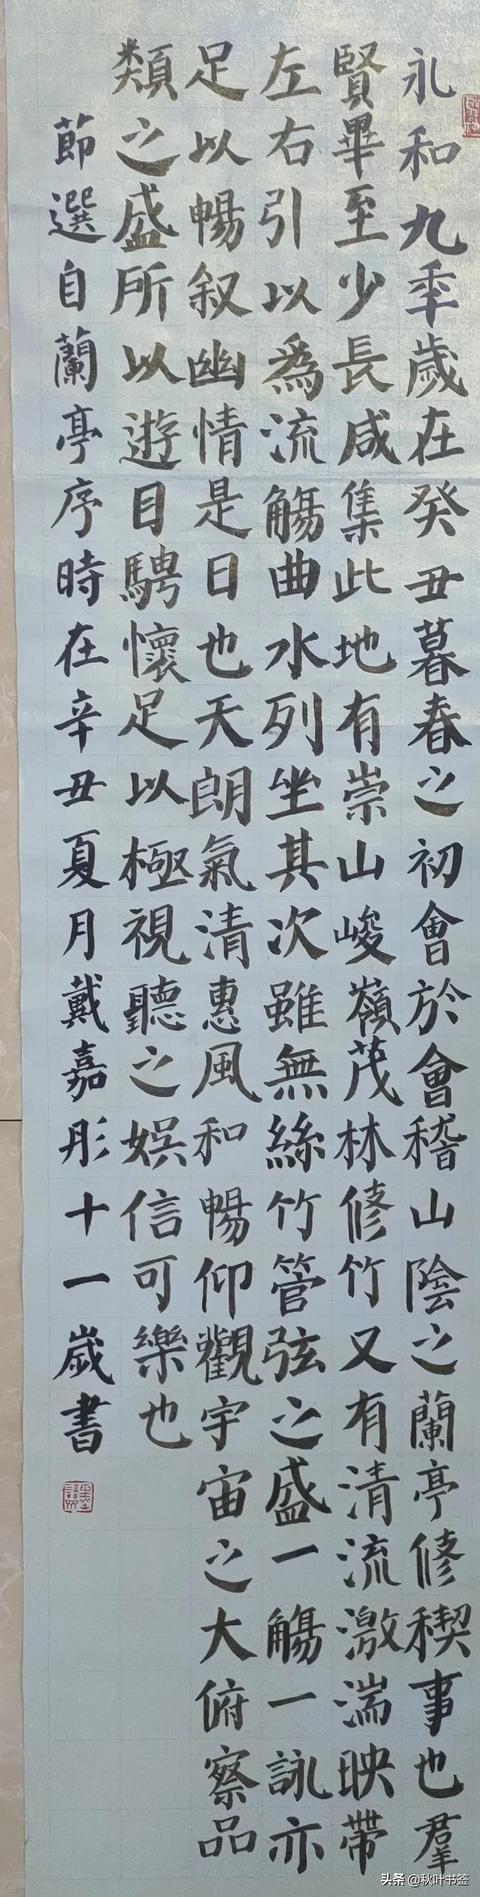 永和九年歲在癸丑暮春之初會於會稽山陰之蘭亭修稧事也羣
賢畢至少長咸集此地有崇山峻嶺茂林修竹又有清流激湍映帶
左右引以為流觴曲水列坐其次雖無絲竹管弦之盛一觴一詠亦
足以暢叙幽情是日也天朗氣清惠風和暢仰觀宇宙之大俯察品
類之盛所以遊目騁懷足以極視聽之娛信可樂也
節選自蘭亭序時在辛丑夏月戴嘉彤十一歲書
头条 @秋叶书签